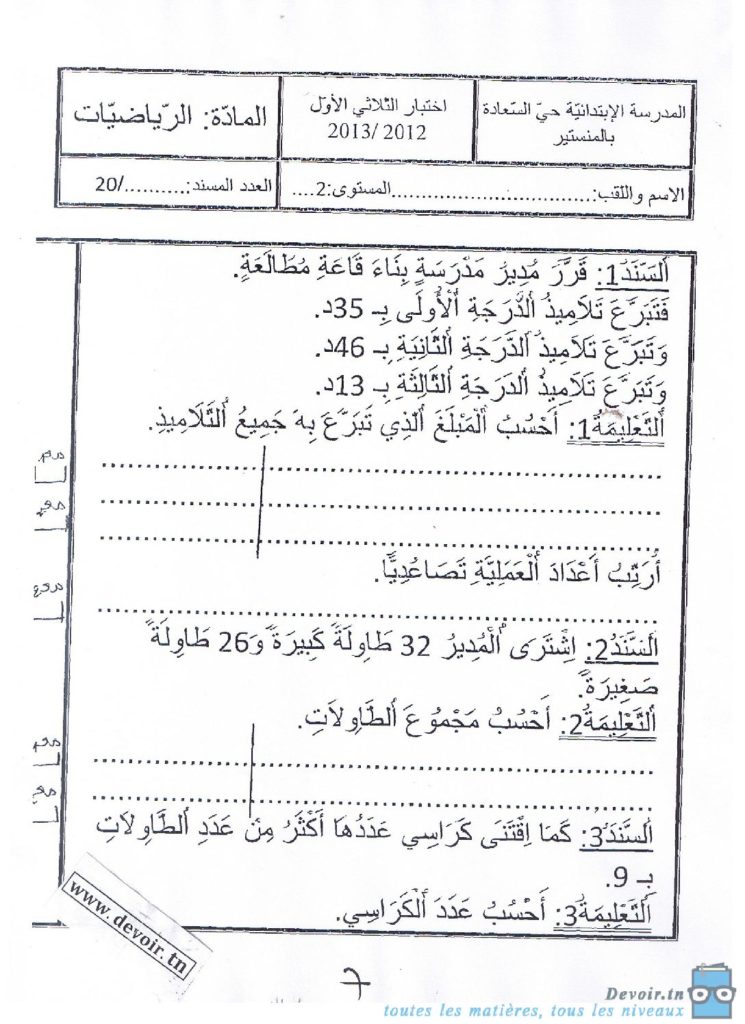 المدرسة الإبتدائيّة حيّ السّعادة
بالمنستير
اختبار الثلاثي الأوّل
2013/ 2012
المادّة: الرّياضيّات
الاسم واللقب:..................................المستوى:2....
العدد المسند:........../20
اَلسَّنَدُ1: قَرَّرَ مُدِيرُ مَدْرَسَةٍ بِنَاءَ قَاعَةِ مُطَالَعَةٍ.
فَتَبَرَّعَ تَلاَمِيذُ الدَّرَجَةِ الْأُولَى بِـ 35د.
وَتَبَرَّعَ تَلاَمِيذُ الدَّرَجَةِ الثَّانِيَةِ بِـ 46د.
وَتَبَرَّعَ تَلاَمِيذُ الدَرَجَةِ الثَّالِثَةِ بِـ 13د.
اَلتَّعْلِيمَةُ1: أَحْسُبُ الْمَبْلَغَ الَّذِي تَبَرَّعَ بِهِ جَمِيعُ التَّلاَمِيذِ.
أُرَتِّبُ أَعْدَادَ الْعَمَلِيَّةِ تَصَاعُدِيًّا.
اَلسَّنَدُ2: اِشْتَرَى الْمُدِيرُ 32 طَاوِلَةً كَبِيرَةً وَ26 طَاوِلَةً
صَغِيرَةً.
اَلتَّعْلِيمَةُ2: أَحْسُبُ مَجْمُوعَ الطَّاوِلاَتِ.
اَلسَّنَدُ3: كَمَا اِقْتَنَى كَرَاسِي عَدَدُهَا أَكْثَرُ مِنْ عَدَدِ الطَّاوِلاَتِ
بِـ 9.
اَلتَّعْلِيمَةُ3: أَحْسُبُ عَدَدَ الْكَرَاسِي.
مع
مع
مع
www.devoir.tn
Devoir.tn
toutes les matières, tous les niveaux